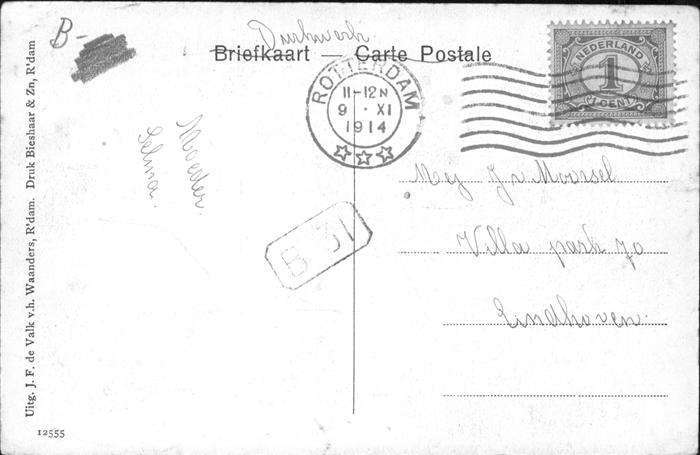 B-
Drukwerk
Briefkaart — Carte Postale
ROTTERDAM
11-12N
9 · XI
1914
NEDERLAND
1
CENT
Moeder
B 31
Mej Jv Moorsel
Villa park 70
Eindhoven.
Uitg. J. F. de Valk v.h. Waanders, R'dam. Druk Bieshaar & Zn, R'dam
12555